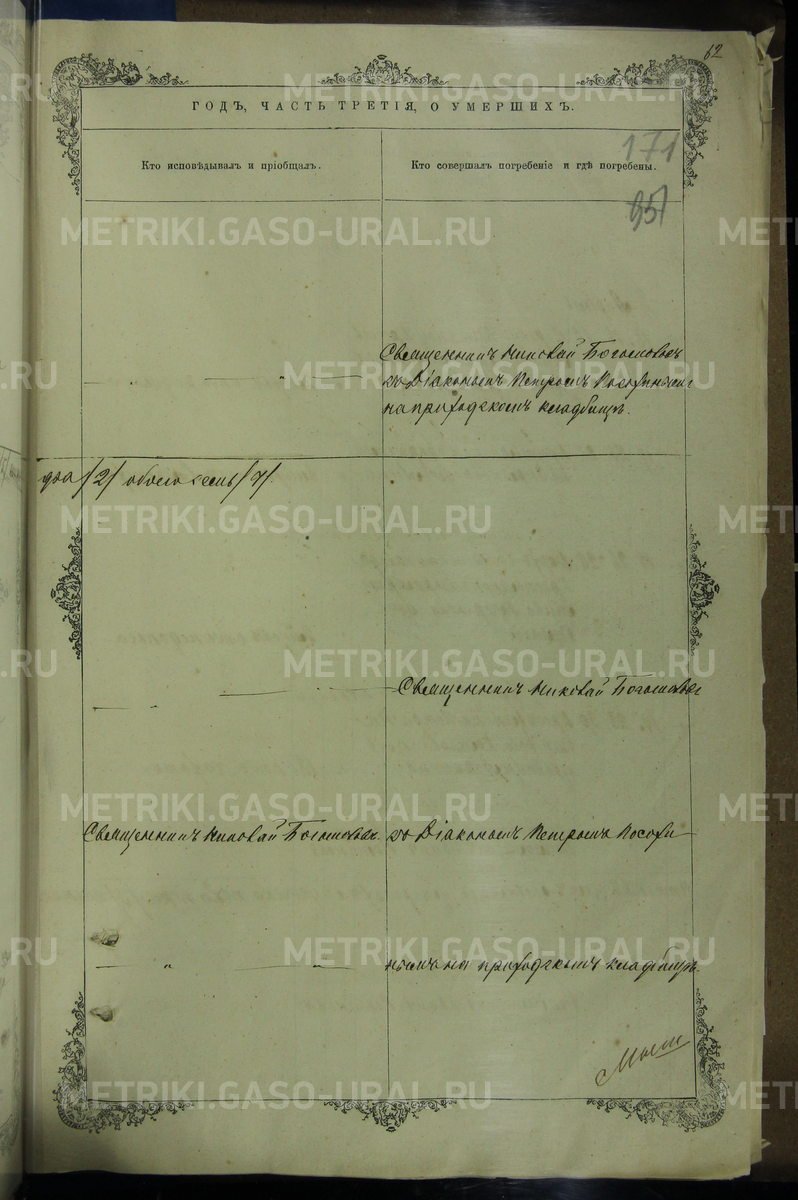 62
ГОДЪ, ЧАСТЬ ТРЕТІЯ, О УМЕРШИХЪ.
171
Кто исповѣдывалъ и пріобщалъ.
Кто совершалъ погребеніе и гдѣ погребены.
95
Священникъ Николай Богословск
съ Діакономъ Петромъ
на приходскомъ кладбищѣ.
два /2/ обоего семь /7/.
Священникъ Николай Богословск
Священникъ Николай Богословск. съ Діакономъ Петромъ
на приходскомъ кладбищѣ.
METRIKI.GASO-URAL.RU